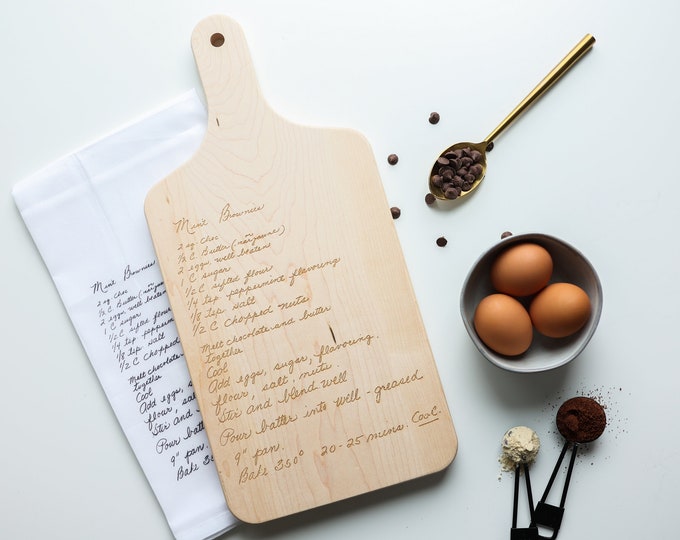 Mint Brownies
2 sq. choc
½ C Butter (margarine)
2 eggs well beaten
1 C sugar
1/2 C sifted flour
1/4 tsp peppermint flavoring
1/8 tsp salt
1/2 C Chopped nuts
Melt chocolate and butter
together
Cool
Add eggs, sugar, flavoring.
flour, salt, nuts.
Stir and blend well
Pour batter into well-greased
9" pan.
Bake 350° 20-25 mins. Cool.
Mint Brownies
2 sq choc
½ C Butter (mar
2 eggs well beaten
1 C sugar
1/2 C sifted flour
1/4 tsp peppermint
1/8 tsp salt
1/2 C Chopped
Melt chocolate
together
Cool
Add eggs, s
flour, salt
Stir and
Pour batter
9" pan.
Bake 350